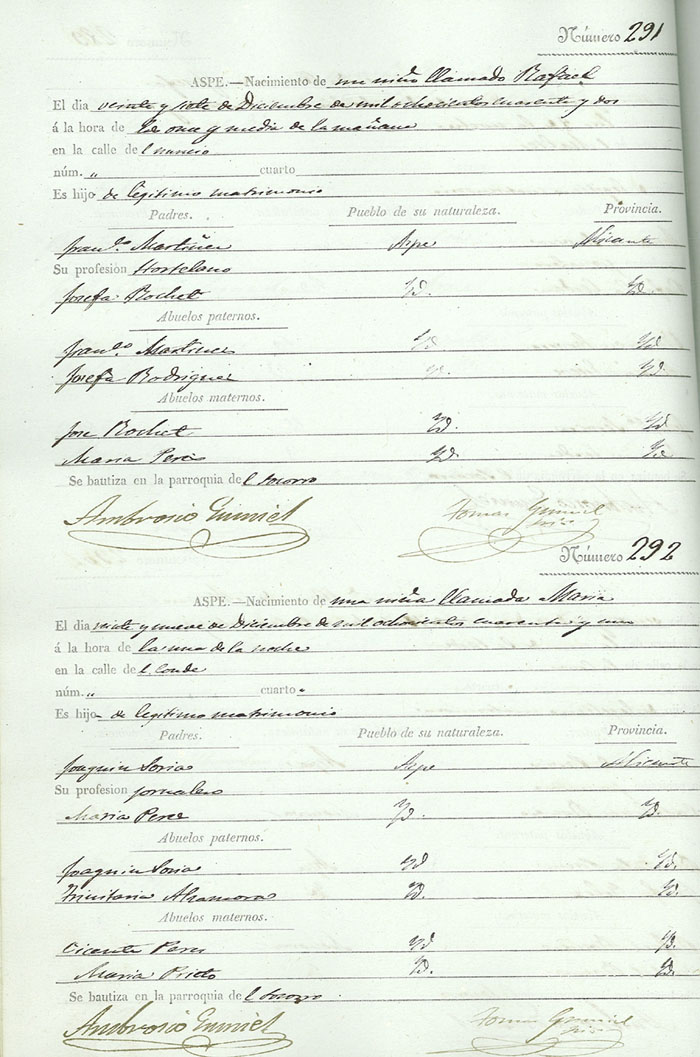 Número 291
ASPE.—Nacimiento de un niño llamado Rafael
El dia veinte y siete de Diciembre de mil ochocientos cuarente y dos
á la hora de las once y media de la mañana
en la calle de l nuncio
núm. „ cuarto
Es hijo de legitimo matrimonio
Padres. Pueblo de su naturaleza. Provincia.
Franco. Martinez Aspe Alicante
Su profesion Hortelano
Josefa Bochet Yd. Yd.
Abuelos paternos.
Franco. Martinez Yd Yd
Josefa Rodriguez Yd. Yd
Abuelos maternos.
Jose Bochet Yd. Yd
Maria Perez Yd. Yd
Se bautiza en la parroquia de l Socorro
Ambrosio Tomas
Número 292
ASPE.—Nacimiento de una niña llamada Maria
El dia veinte y nueve de Diciembre de mil ochocientos cuarenta y
á la hora de la una de la noche
en la calle de l Conde
núm. „ cuarto „
Es hijo de legitimo matrimonio
Padres. Pueblo de su naturaleza. Provincia.
Joaquin Soria Aspe Alicante
Su profesion jornalero
Maria Perez Yd. Yd.
Abuelos paternos.
Joaquin Soria Yd Yd.
Trinitaria Yd. Yd.
Abuelos maternos.
Vicente Perez Yd Yd.
Maria Prieto Yd. Yd.
Se bautiza en la parroquia de l Socorro
Ambrosio Tomas